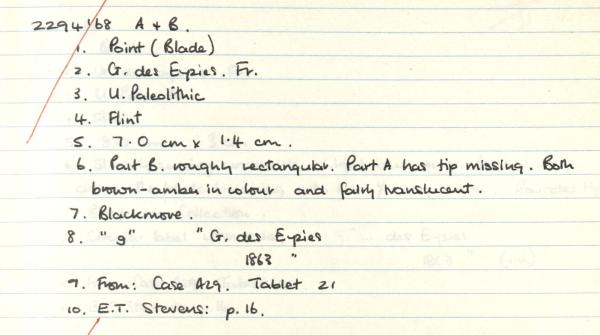 2294'68 A + B.
1. Point (Blade)
2. G. des Eyzies. Fr.
3. U. Paleolithic
4. Flint
5. 7.0 cm x 1.4 cm.
6. Part B. roughly rectangular. Part A has tip missing. Both
brown-amber in colour and fairly translucent.
7. Blackmore.
8. "9" "G. des Eyzies
1863 "
9. From: Case A29. Tablet 21
10. E.T. Stevens: p.16.